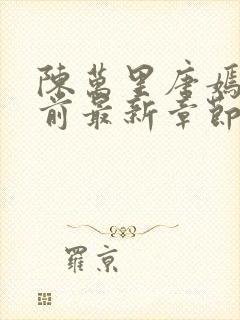 陳萬里唐嫣
前最新章節
羅京